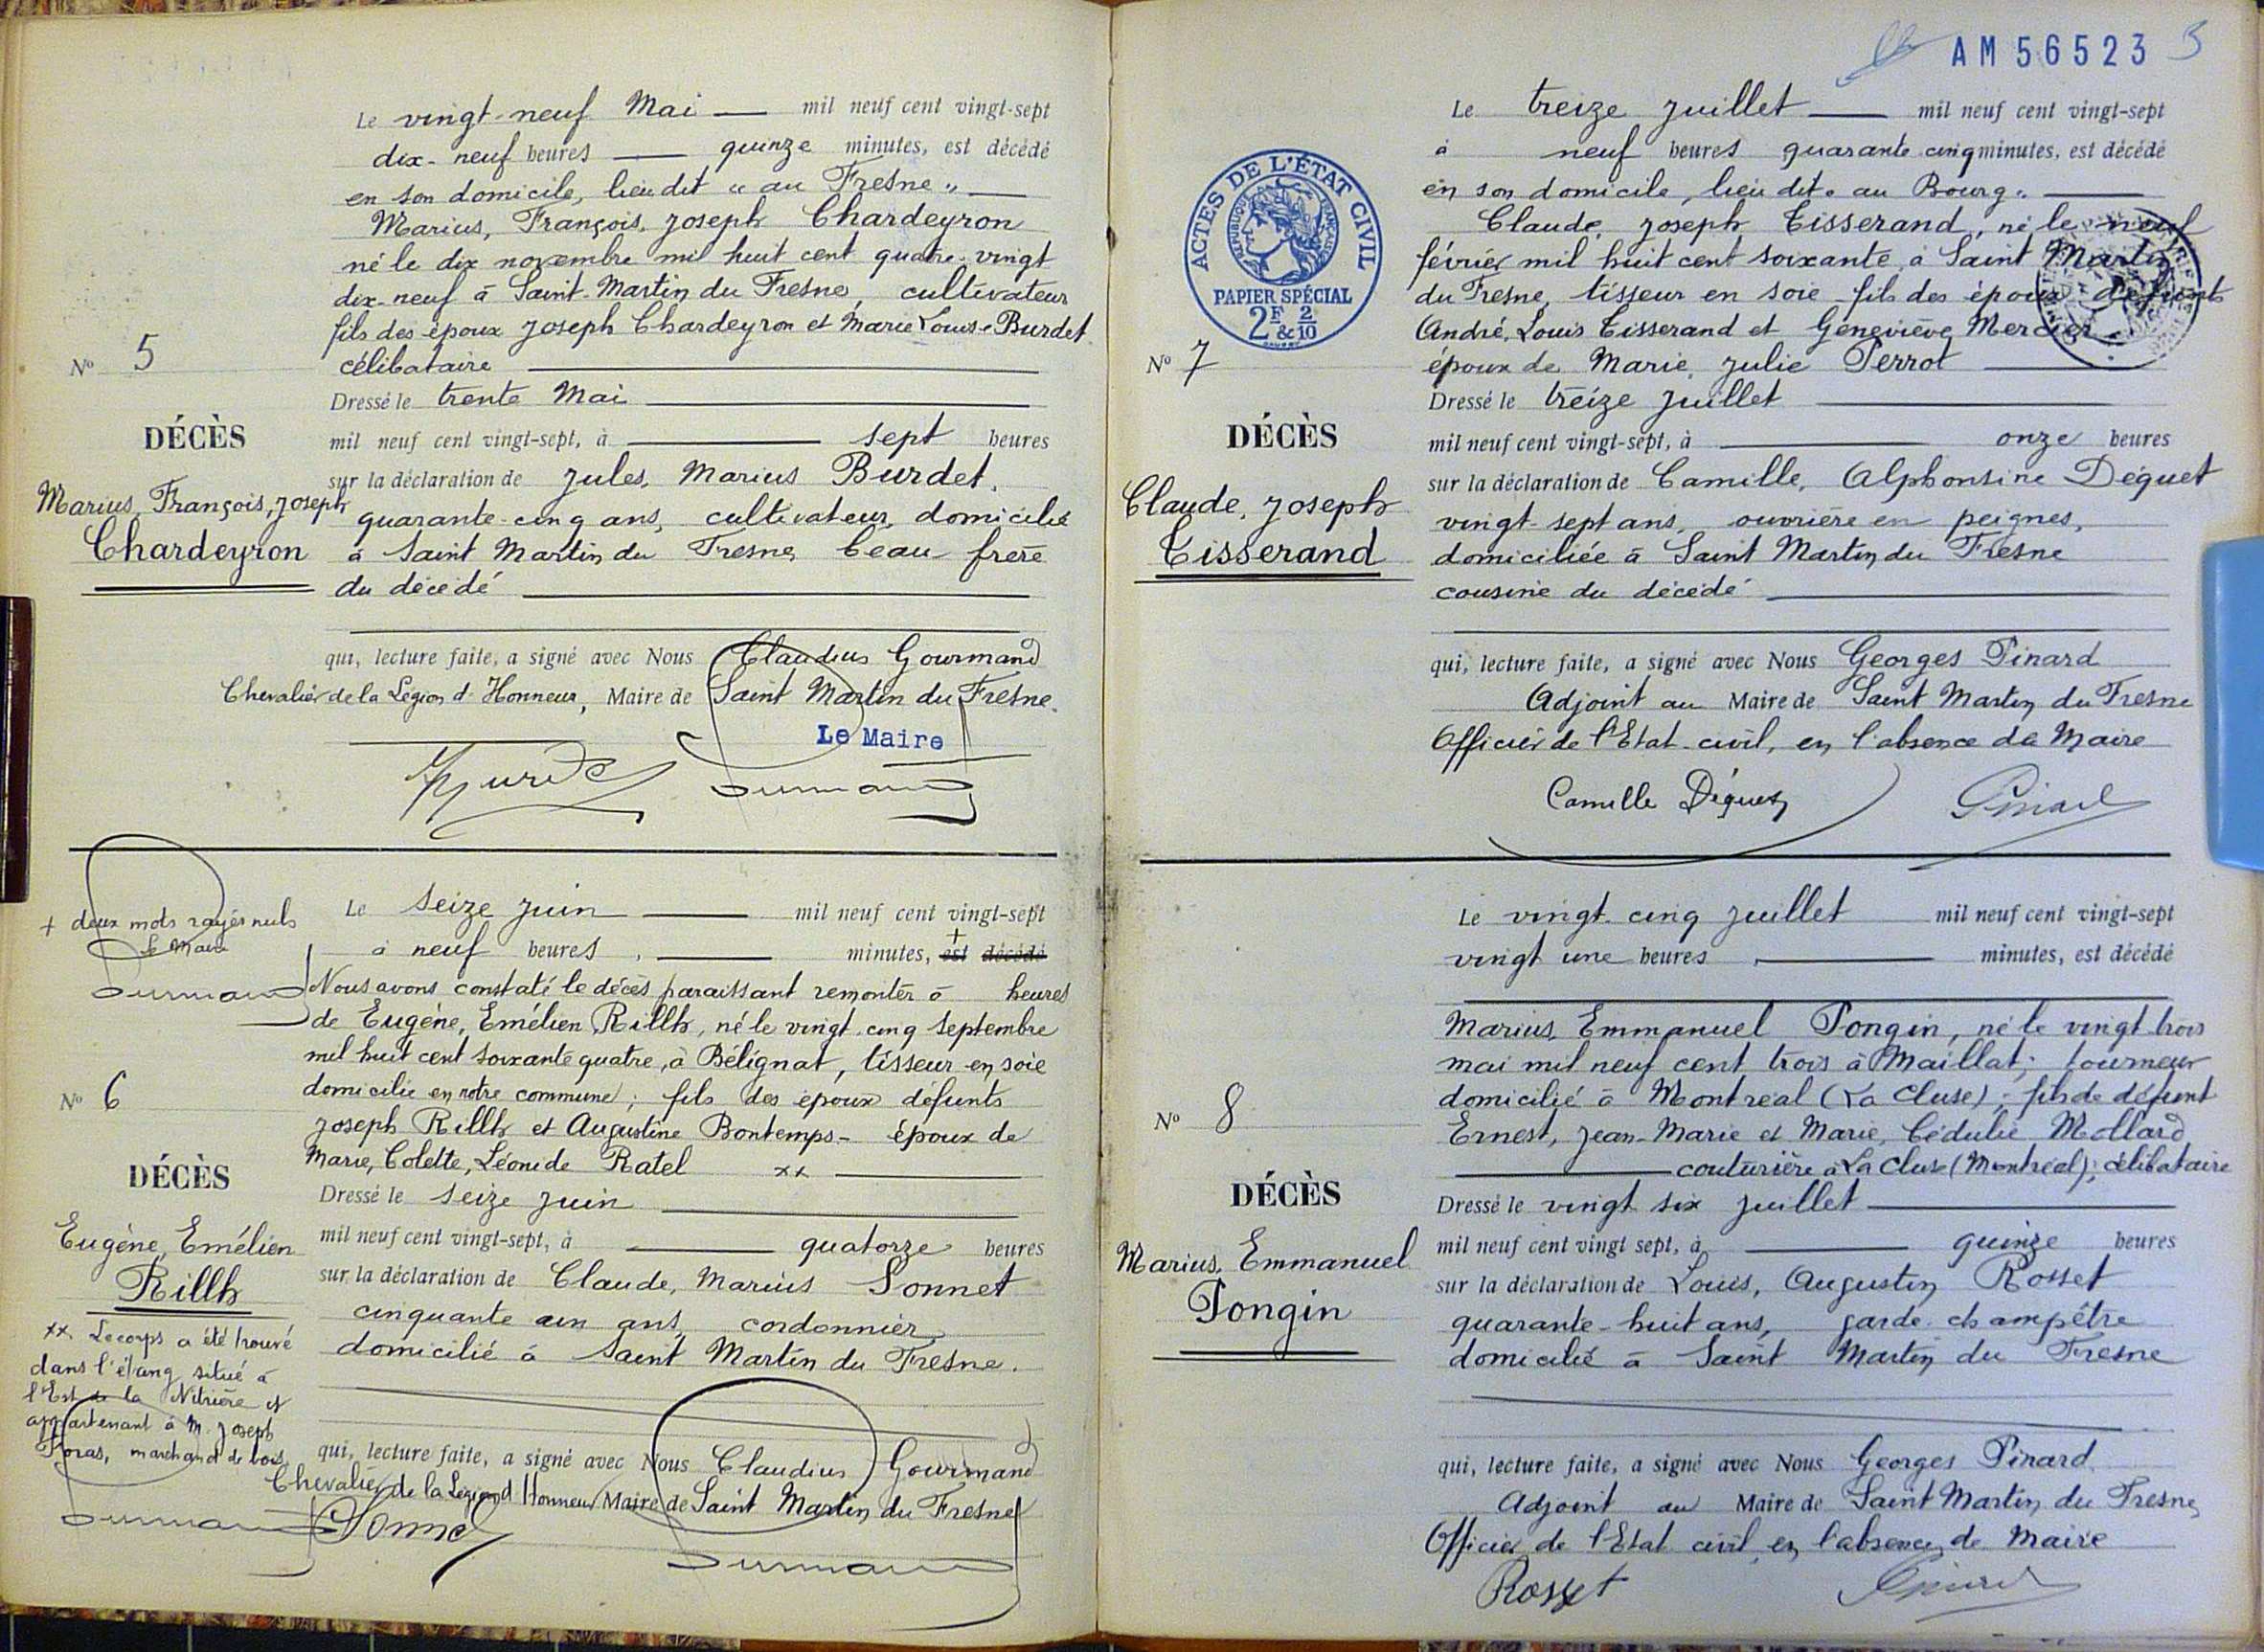 Le vingt-neuf Mai mil neuf cent vingt-sept
dix-neuf heures quinze minutes, est décédé
en son domicile, lieu dit "au Fresne"
Marius, François, Joseph Chardeyron
né le dix novembre mil huit cent quatre-vingt
dix-neuf à Saint-Martin du Fresne, cultivateur
fils des époux Joseph Chardeyron et Marie Louise Burdet
célibataire
No 5
DÉCÈS
Marius, François, Joseph
Chardeyron
Dressé le trente Mai
mil neuf cent vingt-sept, à sept heures
sur la déclaration de Jules, Marius Burdet,
quarante-cinq ans, cultivateur, domicilié
à Saint Martin du Fresne beau-frère
du décédé
qui, lecture faite, a signé avec Nous Claudius Gourmand
Chevalier de la Légion d'Honneur, Maire de Saint Martin du Fresne.
Le Maire
+ deux mots rayés nuls
Le Maire
Le seize juin mil neuf cent vingt-sept
à neuf heures, minutes, + est décédé
Nous avons constaté le décès paraissant remonter à heures
de Eugène, Emélien Rillh, né le vingt-cinq septembre
mil huit cent soixante quatre, à Bélignat, tisseur en soie
domicilié en notre commune; fils des époux défunts
Joseph Rillh et Augustine Bontemps - époux de
Marie, Colette, Léonide Ratel xx
No 6
DÉCÈS
Eugène, Emélien
Rillh
xx. Le corps a été trouvé
dans l'étang situé à
l'Est de la Nitrière et
appartenant à M. Joseph
marchand de bois.
Dressé le seize juin
mil neuf cent vingt-sept, à quatorze heures
sur la déclaration de Claude, Marius Sonnet
cinquante ans, cordonnier,
domicilié à Saint Martin du Fresne.
qui, lecture faite, a signé avec Nous Claudius Gourmand
Chevalier de la Légion d'Honneur Maire de Saint Martin du Fresne
Sonnet
AM 56523
3
ACTES DE L'ÉTAT CIVIL
RÉPUBLIQUE FRANÇAISE
PAPIER SPÉCIAL
2F & 2/10
Le treize juillet mil neuf cent vingt-sept
à neuf heures quarante cinq minutes, est décédé
en son domicile, lieu dit "au Bourg"
Claude, Joseph Tisserand, né le neuf
février mil huit cent soixante à Saint Martin
du Fresne, tisseur en soie - fils des époux défunts
André, Louis Tisserand et Geneviève Mercier
époux de Marie, Julie Perrot
No 7
DÉCÈS
Claude, Joseph
Tisserand
Dressé le treize juillet
mil neuf cent vingt-sept, à onze heures
sur la déclaration de Camille, Alphonsine Déquet
vingt-sept ans, ouvrière en peignes,
domiciliée à Saint Martin du Fresne
cousine du décédé
qui, lecture faite, a signé avec Nous Georges Pinard
Adjoint au Maire de Saint Martin du Fresne
Officier de l'Etat-civil, en l'absence du Maire
Camille Déquet Pinard
Le vingt-cinq juillet mil neuf cent vingt-sept
vingt une heures, minutes, est décédé
Marius, Emmanuel Pongin, né le vingt trois
mai mil neuf cent trois à Maillat; tourneur
domicilié à Montréal (La Cluse); fils de défunt
Ernest, Jean-Marie et Marie, Cédulie Mollard
couturière à La Cluse (Montréal); célibataire
No 8
DÉCÈS
Marius, Emmanuel
Pongin
Dressé le vingt six juillet
mil neuf cent vingt sept, à quinze heures
sur la déclaration de Louis, Augustin Rosset
quarante-huit ans, garde-champêtre
domicilié à Saint Martin du Fresne
qui, lecture faite, a signé avec Nous Georges Pinard
Adjoint au Maire de Saint Martin du Fresne
Officier de l'Etat civil, en l'absence de Maire
Rosset Pinard